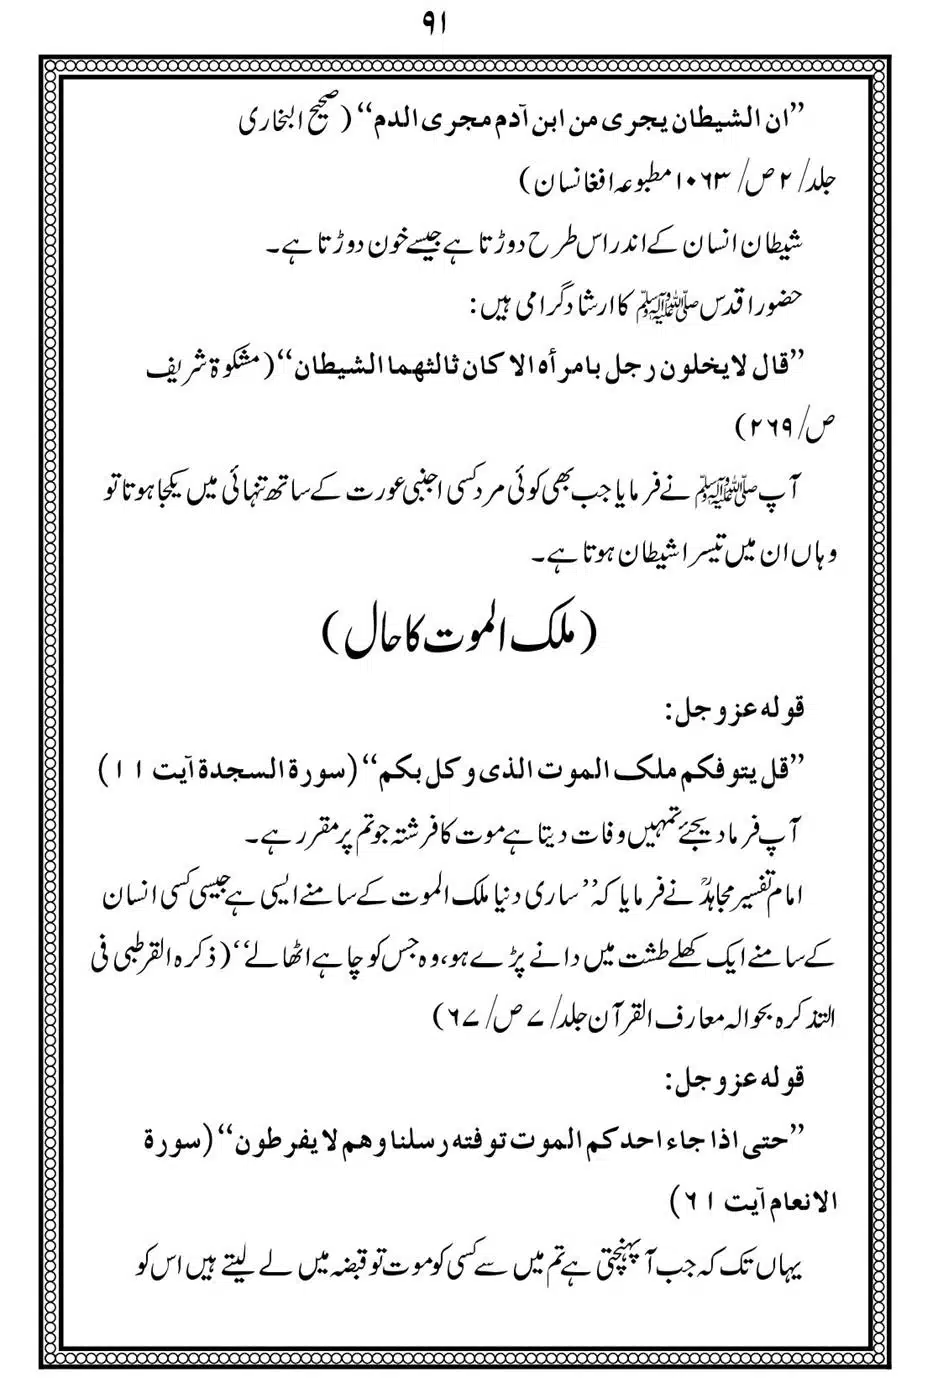 ۹۱
”ان الشیطان یجری من ابن آدم مجری الدم“ (صحیح البخاری
جلد/ ۲ ص/ ۱۰۶۳ مطبوعہ افغانسان)
شیطان انسان کے اندر اس طرح دوڑتا ہے جیسے خون دوڑتا ہے۔
حضور اقدس ﷺ کا ارشاد گرامی ہیں:
”قال لا یخلون رجل بامرأہ الا کان ثالثھما الشیطان“ (مشکوۃ شریف
ص/ ۲۶۹)
آپ ﷺ نے فرمایا جب بھی کوئی مرد کسی اجنبی عورت کے ساتھ تنہائی میں یکجا ہوتا تو
وہاں ان میں تیسرا شیطان ہوتا ہے۔
(ملک الموت کا حال)
قولہ عزوجل:
”قل یتوفکم ملک الموت الذی وکل بکم“ (سورۃ السجدۃ آیت ۱۱)
آپ فرما دیجئے تمہیں وفات دیتا ہے موت کا فرشتہ جو تم پر مقرر ہے۔
امام تفسیر مجاہدؒ نے فرمایا کہ ”ساری دنیا ملک الموت کے سامنے ایسی ہے جیسی کسی انسان
کے سامنے ایک کھلے طشت میں دانے پڑے ہو، وہ جس کو چاہے اٹھا لے“ (ذکرہ القرطبی فی
التذکرہ بحوالہ معارف القرآن جلد/ ۷ ص/ ۶۷)
قولہ عزوجل:
”حتی اذا جاء احدکم الموت توفتہ رسلنا وھم لا یفرطون“ (سورۃ
الانعام آیت ۶۱)
یہاں تک کہ جب آ پہنچتی ہے تم میں سے کسی کو موت تو قبضہ میں لے لیتے ہیں اس کو